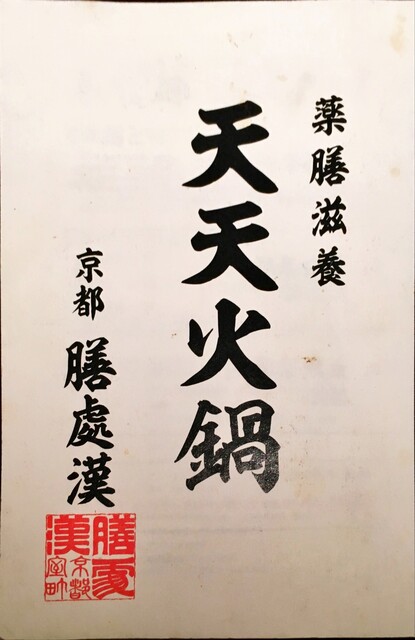 薬膳滋養
天天火鍋
京都 膳處漢
膳處
漢
京都
室町